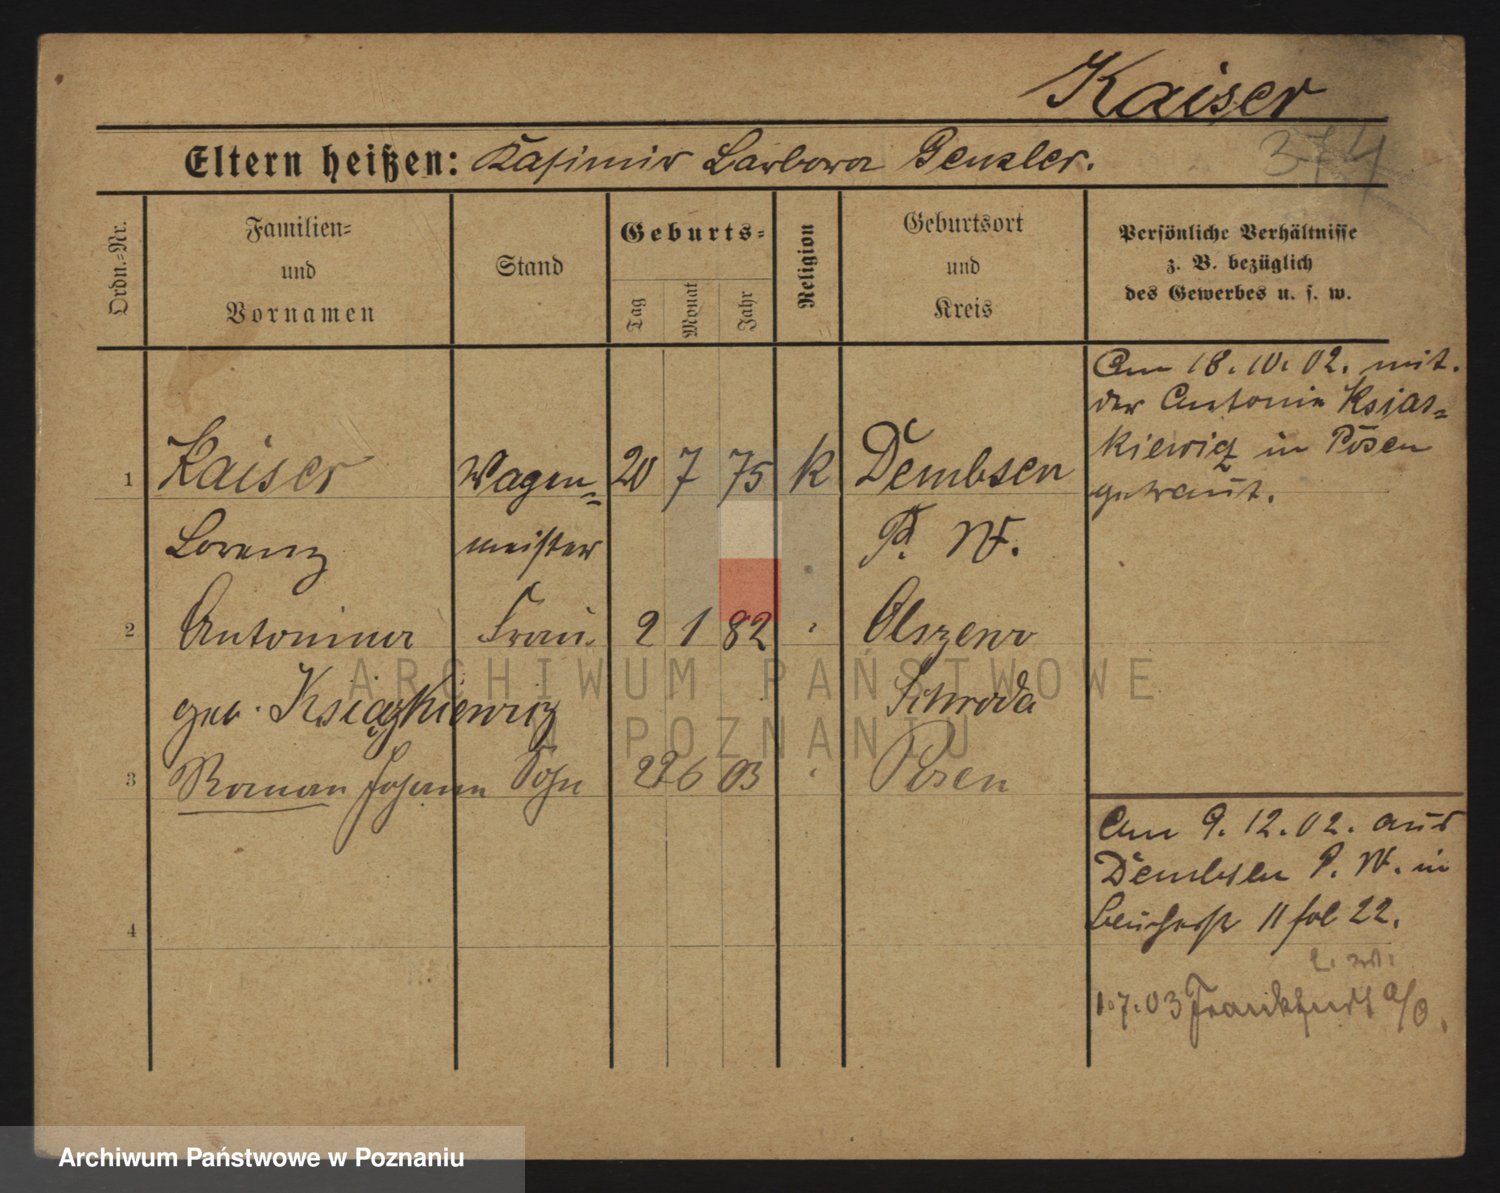 Kaiser
374
Eltern heißen: Kasimir Barbara Genzler.
Ordn.=Nr.
Familien=
und
Vornamen
Stand
Geburts=
Tag
Monat
Jahr
Religion
Geburtsort
und
Kreis
Persönliche Verhältnisse
z. B. bezüglich
des Gewerbes u. s. w.
Am 18. 10. 02. mit
der Antonie Ksias=
kiewicz in Posen
getraut.
1 Kaiser Wagen= 20 7 75 K Dembsen
Lorenz meister P. W.
2 Antonina Frau 2 1 82 " Olszewo
geb. Książkiewicz Schroda
3 Roman Johann Sohn 22 6 03 " Posen
4
Am 9. 12. 02. aus
Dembsen P. W. in
11 fol 22.
1.7.03 Frankfurt a/O.
ARCHIWUM PAŃSTWOWE
W POZNANIU
Archiwum Państwowe w Poznaniu